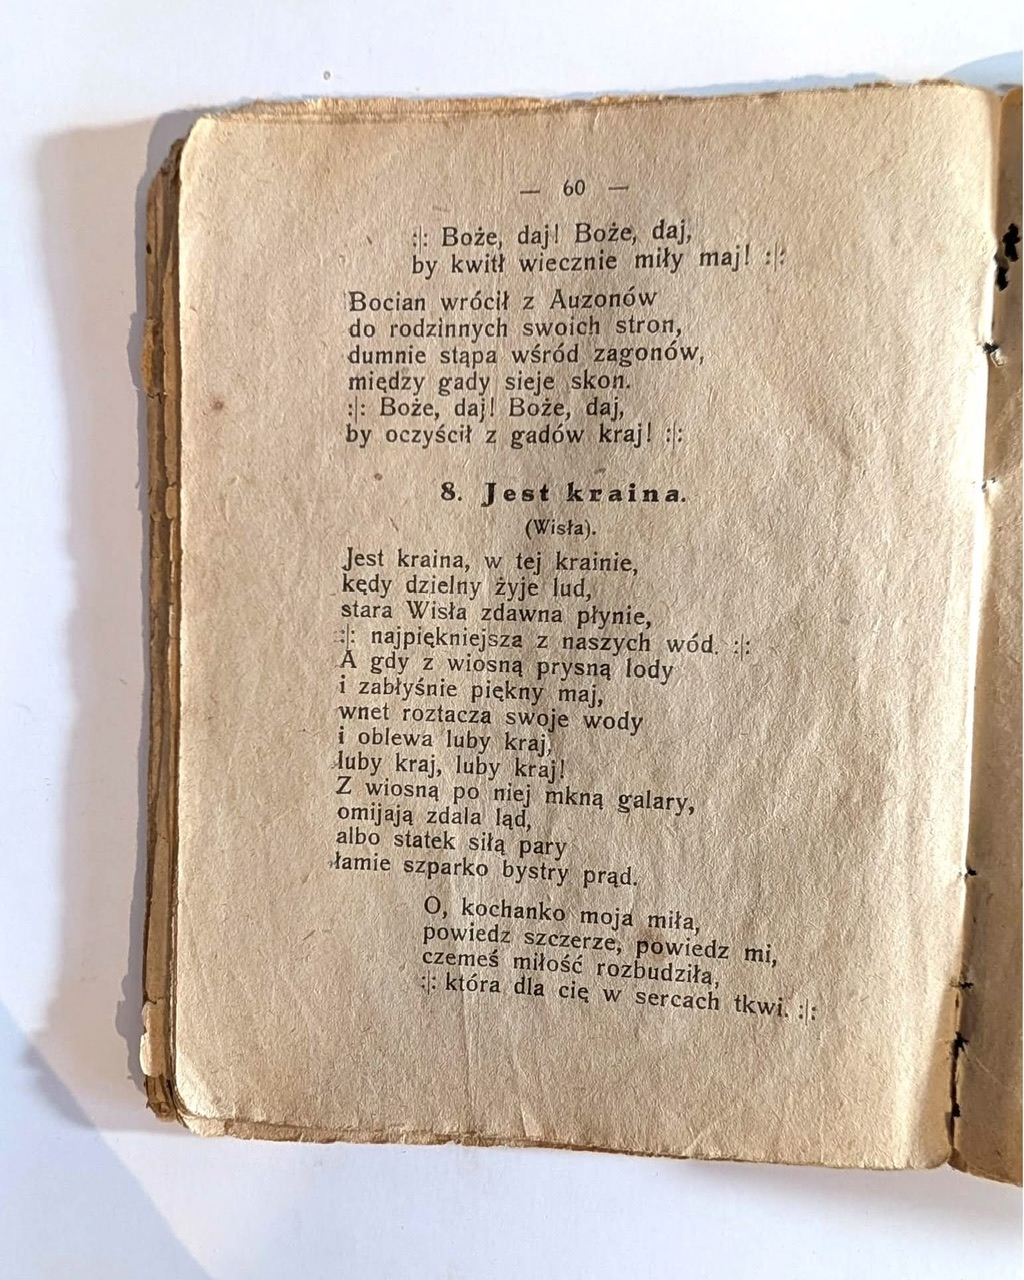 — 60 —
:|: Boże, daj! Boże, daj,
by kwitł wiecznie miły maj! :|:
Bocian wrócił z Auzonów
do rodzinnych swoich stron,
dumnie stąpa wśród zagonów,
między gady sieje skon.
:|: Boże, daj! Boże, daj,
by oczyścił z gadów kraj! :|:
8. Jest kraina.
(Wisła).
Jest kraina, w tej krainie,
kędy dzielny żyje lud,
stara Wisła zdawna płynie,
:|: najpiękniejsza z naszych wód. :|:
A gdy z wiosną prysną lody
i zabłyśnie piękny maj,
wnet roztacza swoje wody
i oblewa luby kraj,
luby kraj, luby kraj!
Z wiosną po niej mkną galary,
omijają zdala ląd,
albo statek siłą pary
łamie szparko bystry prąd.
O, kochanko moja miła,
powiedz szczerze, powiedz mi,
czemeś miłość rozbudziła,
:|: która dla cię w sercach tkwi. :|: